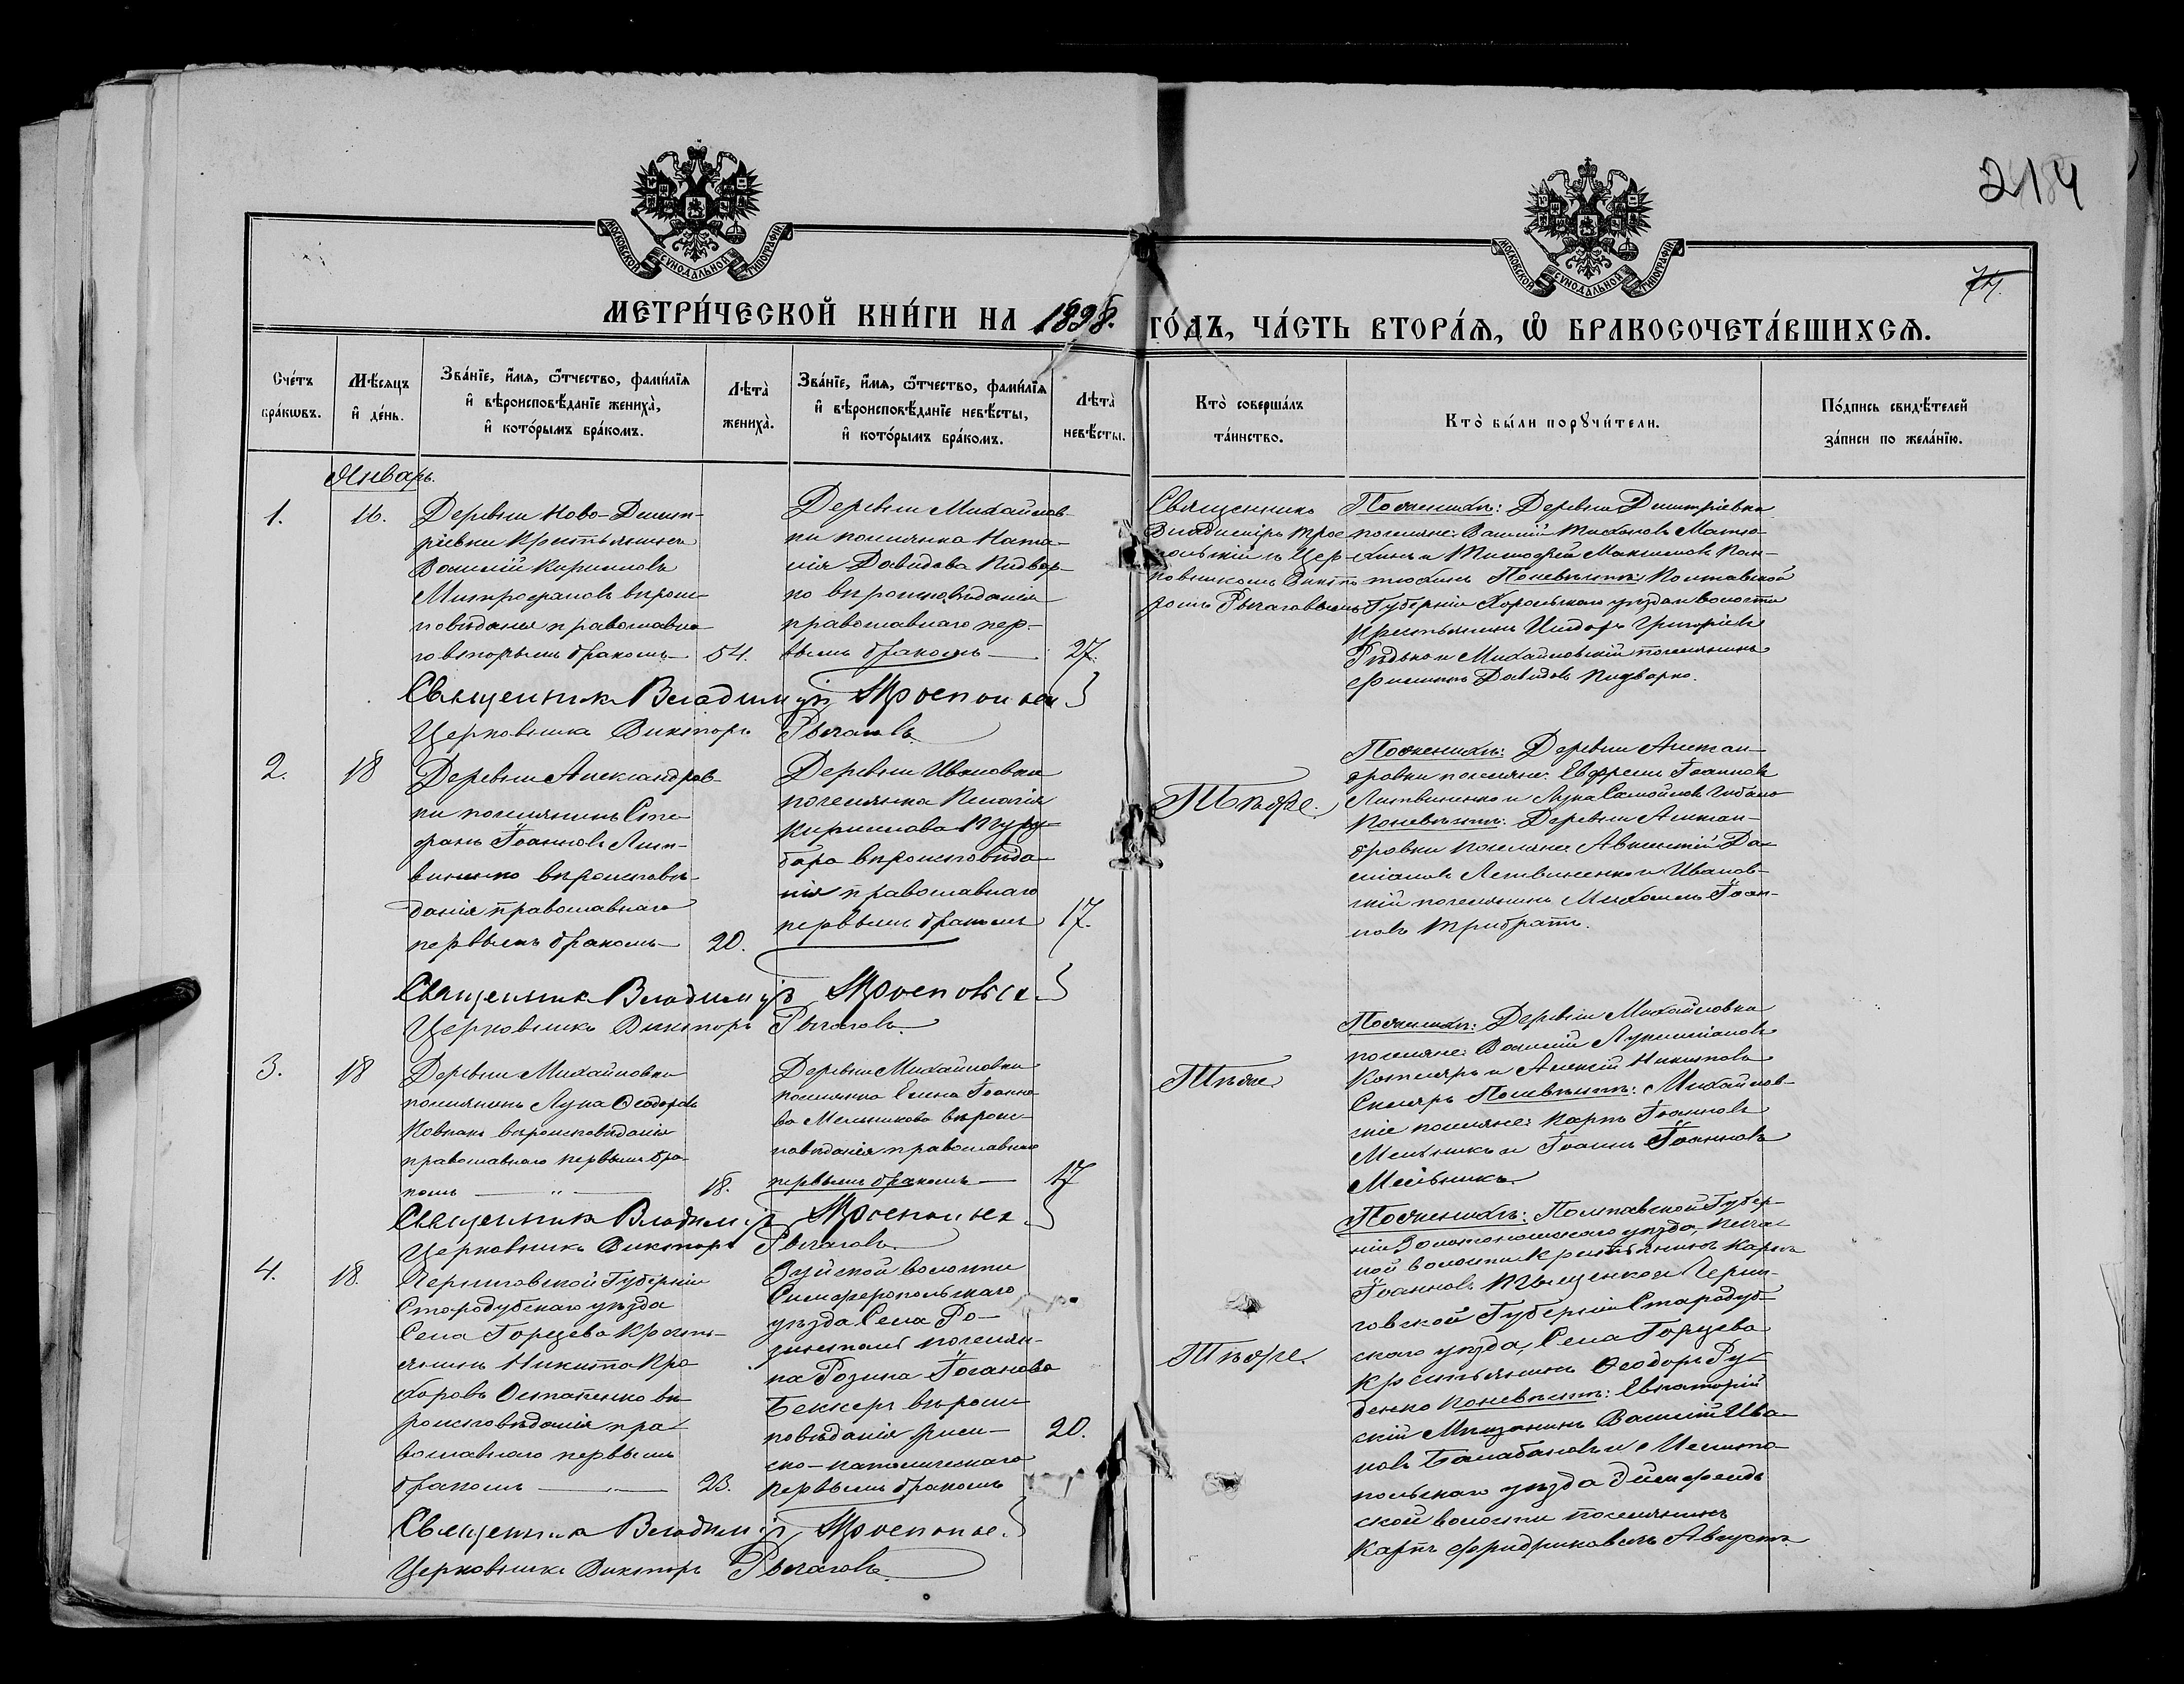 214
74.
МОСКОВСКОЙ СѴНОДАЛЬНОЙ ТИПОГРАФІИ
МОСКОВСКОЙ СѴНОДАЛЬНОЙ ТИПОГРАФІИ
МЕТРИ́ЧЕСКОЙ КНИ́ГИ НА 1898. ГО́ДЪ, ЧА́СТЬ ВТОРА́Я, Ѡ҆ БРАКОСОЧЕТА́ВШИХСЯ.
Сче́тъ бра́кѡвъ.
Мѣ́сяцъ и҆ де́нь.
Зва́нїе, и҆́мя, ѻ҆́тчество, фами́лїя
и҆ вѣроисповѣ́данїе жениха̀,
и҆ кото́рымъ бра́комъ.
Лѣта̀ жениха̀.
Зва́нїе, и҆́мя, ѻ҆́тчество, фами́лїя
и҆ вѣроисповѣ́данїе невѣ́сты,
и҆ кото́рымъ бра́комъ.
Лѣта̀ невѣ́сты.
Кто̀ соверша́лъ та́инство.
Кто̀ бы́ли порꙋчи́тели.
По́дпись свидѣ́телей за́писи по жела́нїю.
Январь.
1.
16.
Деревни Ново-Димит-
ріевки Крестьянинъ
Василій Кирилловъ
Митрофановъ вѣроис-
повѣданія православна-
го вторымъ бракомъ
54.
Деревни Михайлов-
ки поселянка Ната-
лія Давидова Пидвар-
ко вѣроисповѣданія
православнаго пер-
вымъ бракомъ
27.
Священникъ
Владиміръ Трое-
польскій съ Цер-
ковникомъ Викто-
ромъ Рычаговымъ
По женихѣ: Деревни Димитріевки
поселяне: Василій Тихоновъ Матю-
хинъ и Тимофей Максимовъ Пан-
тюхинъ По невѣстѣ: Полтавской
Губерніи Хорольскаго уѣзда и волости
Крестьянинъ Исидоръ Григоріевъ
Рѣдько и Михайловскій поселянинъ
Филиппъ Давидовъ Пидварко.
Священникъ Владиміръ Троепольскій
Церковникъ Викторъ Рычаговъ
2.
18
Деревни Александров-
ки поселянинъ Сте-
фанъ Іоанновъ Лит-
виненко вѣроисповѣ-
данія православнаго
первымъ бракомъ
20.
Деревни Ивановки
поселянка Пелагія
Кириллова
вѣроисповѣда-
нія православнаго
первымъ бракомъ
17.
Тѣже.
По женихѣ: Деревни Алексан-
дровки поселяне: Ефремъ Іоанновъ
Литвиненко и Лука Самойловъ
По невѣстѣ: Деревни Алексан-
дровки поселяне Авксентій Да-
міановъ Литвиненко и Иванов-
скій поселянинъ Михаилъ Іоан-
новъ Трибратъ.
Священникъ Владиміръ Троепольскій
Церковникъ Викторъ Рычаговъ
3.
18
Деревни Михайловки
поселянинъ Лука Ѳеодоровъ
Ковпакъ вѣроисповѣданія
православнаго первымъ бра-
комъ
18.
Деревни Михайловки
поселянка Елена Іоанно-
ва Мельникова вѣроис-
повѣданія православнаго
первымъ бракомъ
17
Тѣже
По женихѣ: Деревни Михайловки
поселяне: Василій Лукиліановъ
Котляръ и Алексій Никитовъ
Скляръ По невѣстѣ: Михайлов-
скіе поселяне: Карпъ Іоанновъ
Мельникъ и Іоаннъ Іоанновъ
Мельникъ.
Священникъ Владиміръ Троепольскій
Церковникъ Викторъ Рычаговъ
4.
18.
Черниговской Губерніи
Стародубскаго уѣзда
Села Горцева Кресть-
янинъ Никита Про-
хоровъ Остапенко вѣ-
роисповѣданія пра-
вославнаго первымъ
бракомъ
23.
Зуйской волости
Симферопольскаго
уѣзда Села Ро-
зенталь поселян-
ка Розина Іоганова
Беккеръ вѣроис-
повѣданія рим-
ско-католическаго
первымъ бракомъ
20.
Тѣже.
По женихѣ: Полтавской Губер-
ніи Золотоношскаго уѣзда, Песча-
ной волости Крестьянинъ Карпъ
Іоанновъ и Черни-
говской Губерніи Стародуб-
скаго уѣзда, Села Горцева
Крестьянинъ Ѳеодоръ Ру-
денко По невѣстѣ: Евпаторій-
скій Мѣщанинъ Василій Ива-
новъ Балабановъ и Мелито-
польскаго уѣзда Эйгенфельд-
ской волости поселянинъ
Карлъ Фридриховичъ Августъ
Священникъ Владиміръ Троепольскій
Церковникъ Викторъ Рычаговъ